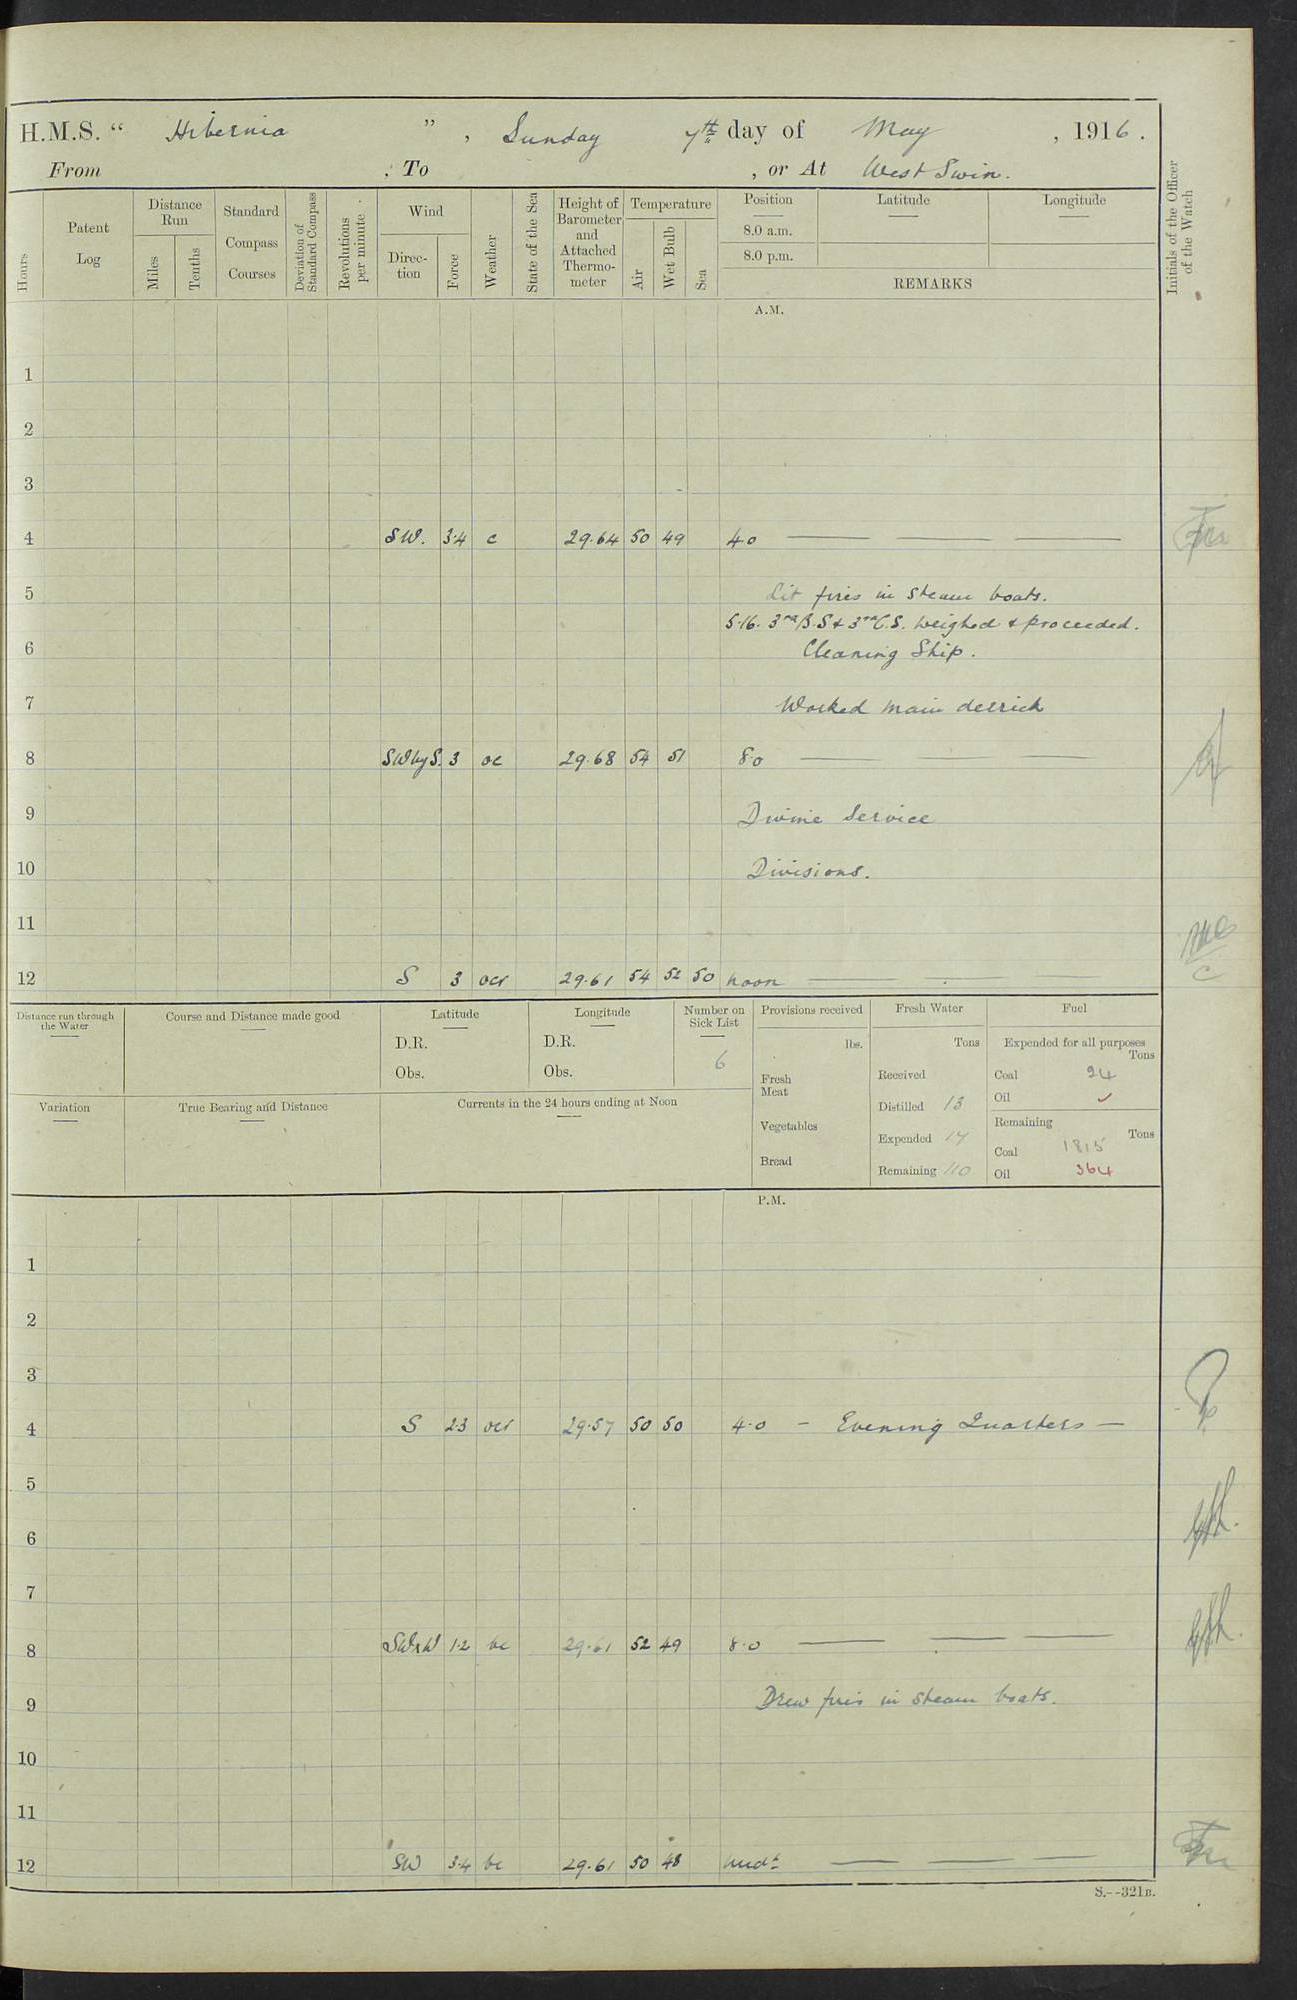 H.M.S. “ Hibernia ” , Sunday 7th day of May , 1916 .
From , To , or At West Swin.
Hours
Patent Log
Distance Run
Miles
Tenths
Standard Compass Courses
Deviation of Standard Compass
Revolutions per minute .
Wind
Direc-tion
Force
Weather
State of the Sea
Height of Barometer and Attached Thermo-meter
Temperature
Air
Wet Bulb
Sea
Position
8.0 a.m.
8.0 p.m.
Latitude
Longitude
REMARKS
Initials of the Officer of the Watch
A.M.
1
2
3
4 SW. 3·4 c 29·64 50 49 4·0
5 Lit fires in steam boats.
5·16. 3rd B.S & 3rd C.S. weighed & proceeded.
6 Cleaning Ship.
7 Worked main derrick
8 SWbyS. 3 oc 29·68 54 51 8·0
9 Divine Service
10 Divisions.
11
12 S 3 ocr 29·61 54 52 50 noon
Distance run through the Water
Course and Distance made good
Latitude
D.R.
Obs.
Longitude
D.R.
Obs.
Number on Sick List
6
Variation
True Bearing and Distance
Currents in the 24 hours ending at Noon
Provisions received
lbs.
Fresh Meat
Vegetables
Bread
Fresh Water
Tons
Received
Distilled 13
Expended 17
Remaining 110
Fuel
Expended for all purposes
Tons
Coal 24
Oil ✓
Remaining
Tons
Coal 1815
Oil 364
P.M.
1
2
3
4 S 2·3 ocr 29·57 50 50 4·0 – Evening Quarters –
5
6
7
8 SWxW 1·2 bc 29·61 52 49 8·0
9 Drew fires in steam boats.
10
11
12 SW 3·4 bc 29·61 50 48 midt
S.--321B.